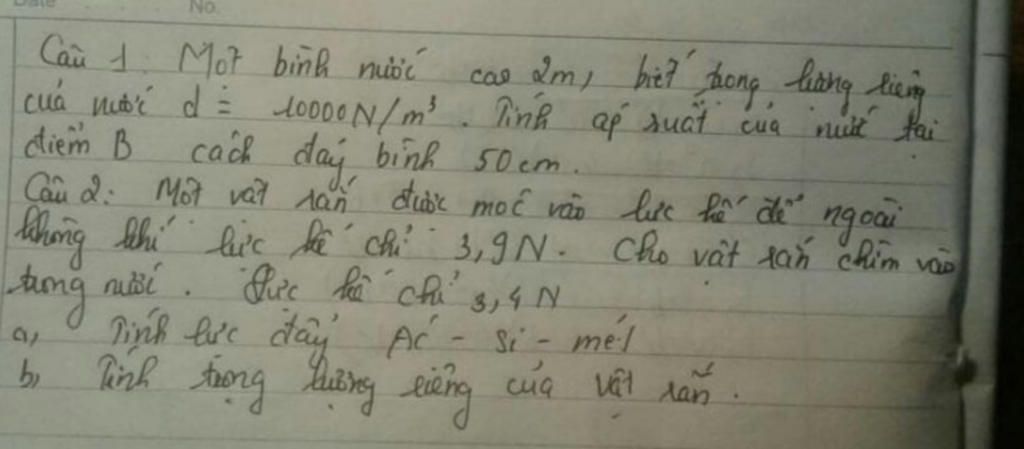 Date No.
Câu 1. Một bình nước cao 2m, biết trọng lượng riêng
của nước d = 10000N/m³. Tính áp suất của nước tại
điểm B cách đáy bình 50cm.
Câu 2: Một vật rắn được móc vào lực kế để ngoài
không khí lực kế chỉ 3,9N. Cho vật rắn chìm vào
trong nước. Lực kế chỉ 3,4N
a, Tính lực đẩy Ác - si - mét
b, Tính trọng lượng riêng của vật rắn.